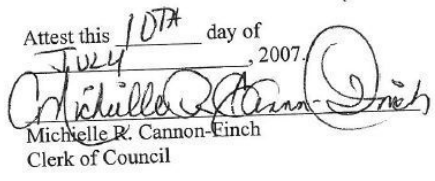 Attest this 10TH day of
JULY, 2007.
Michielle R. Cannon-Finch
Michielle R. Cannon-Finch
Clerk of Council